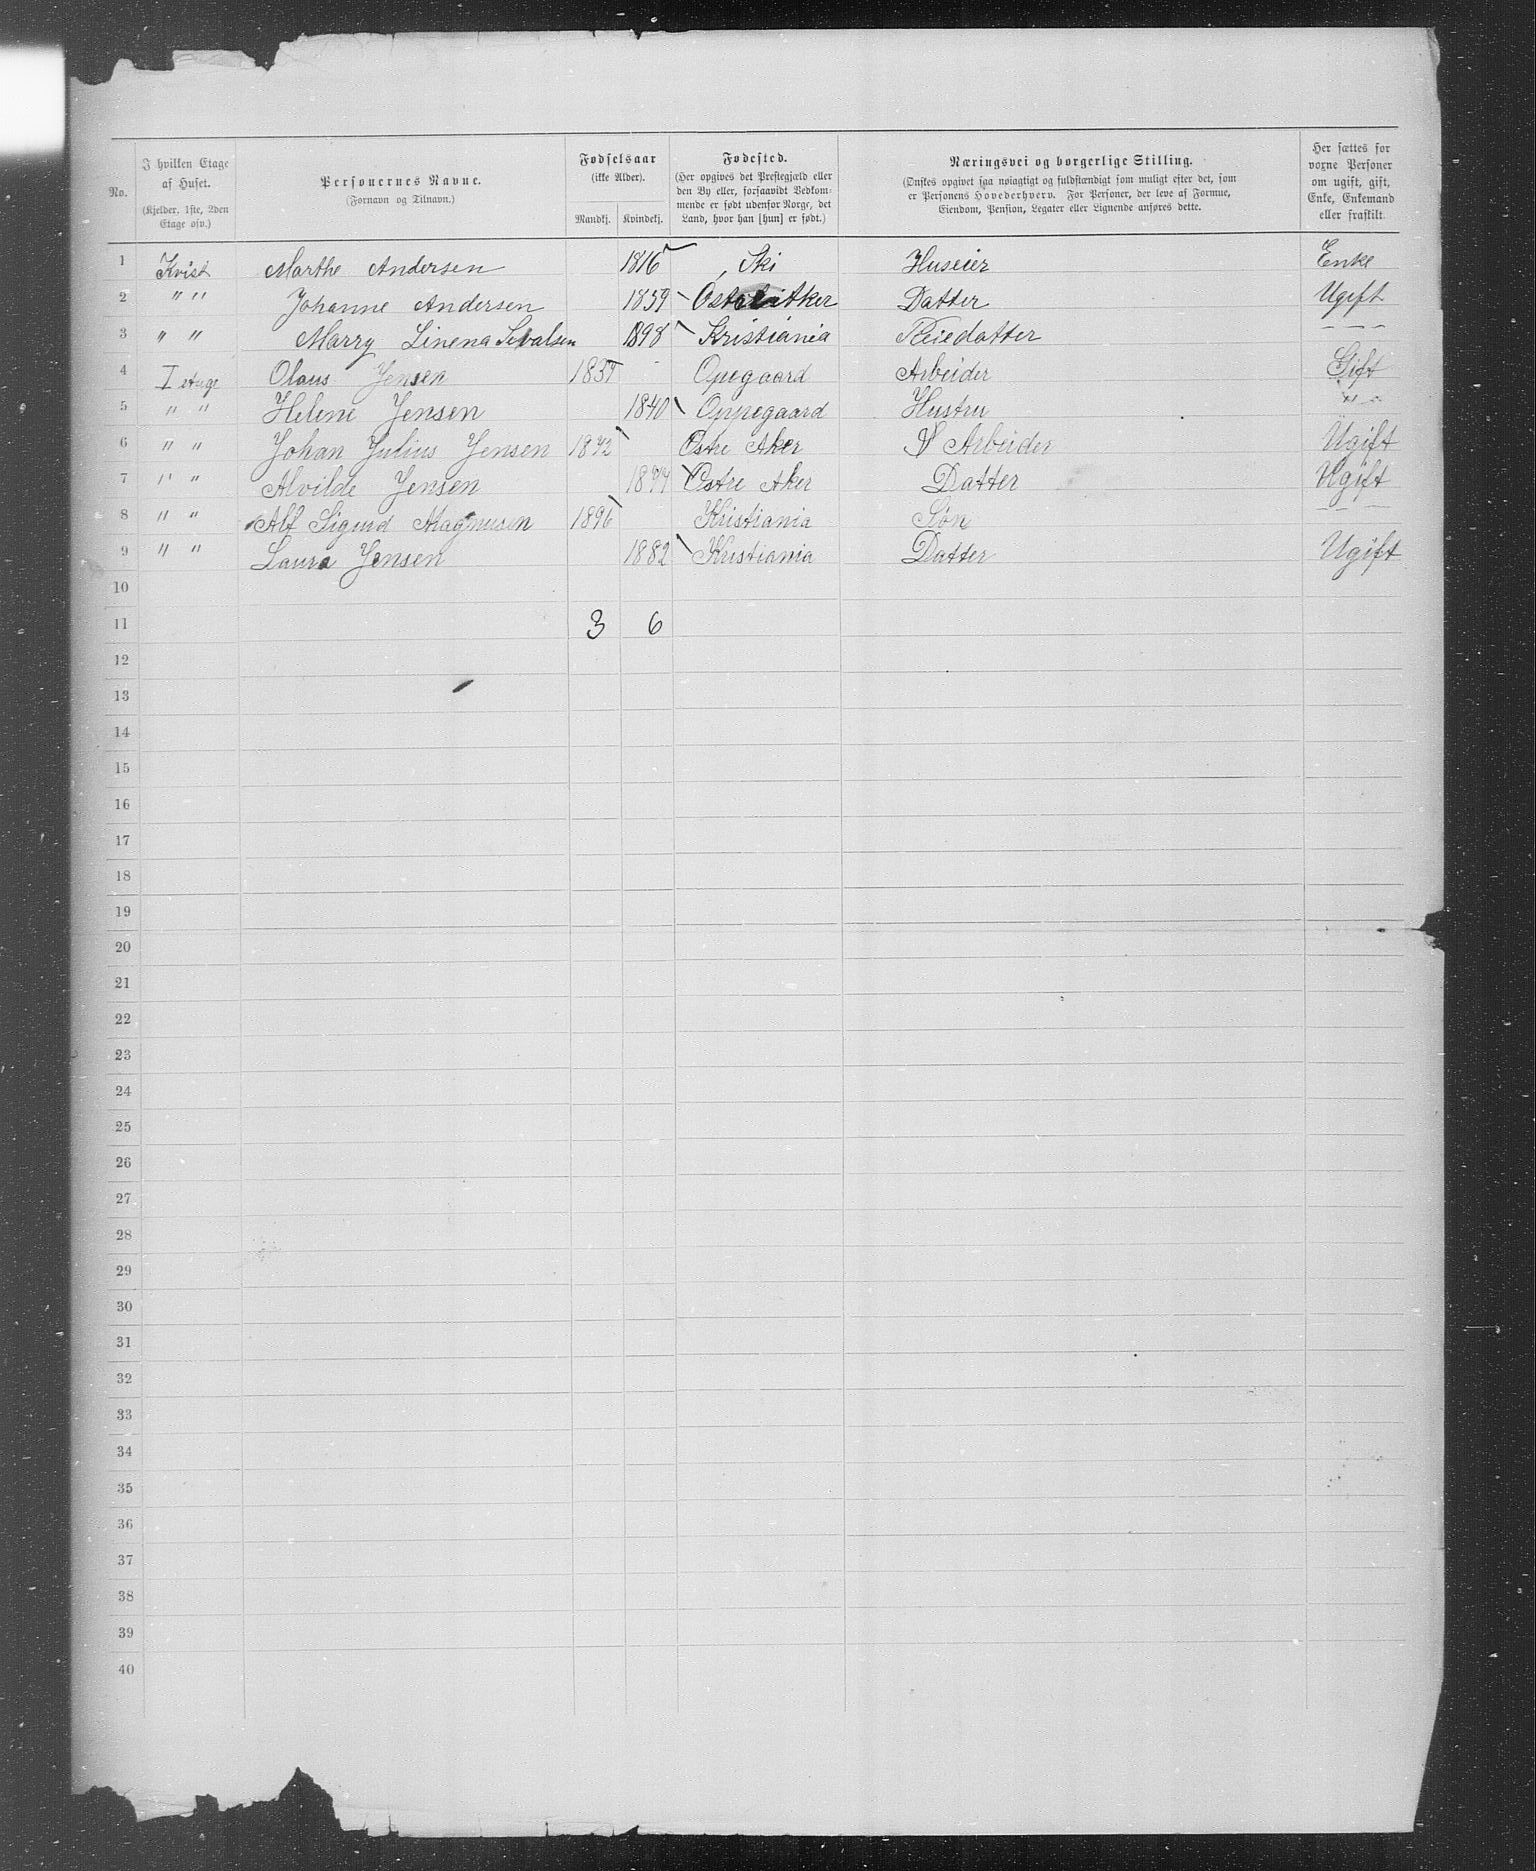 No. | I hvilken Etage af Huset. (Kjelder, 1ste, 2den Etage osv.) | Personernes Navne. (Fornavn og Tilnavn.) | Fødselsaar (ikke Alder). Mandkj. | Kvindekj. | Fødested. (Her opgives det Prestegjæld eller den By eller, forsaavidt Vedkommende er født udenfor Norge, det Land, hvor han [hun] er født.) | Næringsvei og borgerlige Stilling. (Ønskes opgivet saa nøiagtigt og fuldstændigt som muligt efter det, som er Personens Hovederhverv. For Personer, der leve af Formue, Eiendom, Pension, Legater eller Lignende anføres dette. | Her sættes for voxne Personer om ugift, gift, Enke, Enkemand eller fraskilt.
1 Kvist Marthe Andersen 1816 Ski Huseier Enke
2 " " Johanne Andersen 1859 Aker Datter Ugift
3 " " Marry Linena 1898 Kristiania Pleiedatter - - -
4 I etage Olaus Jensen Opegaard Arbeider Gift
5 " " Helene Jensen 1840 Oppegaard Hustru " -
6 " " Johan Julius Jensen 1872 Østre Aker Arbeider Ugift
7 " " Alvilde Jensen Østre Aker Datter Ugift
8 " " Alf Sigurd Magnusen 1896 Kristiania Søn - - -
9 " " Laura Jensen 1882 Kristiania Datter Ugift
10
11 3 6
12
13
14
15
16
17
18
19
20
21
22
23
24
25
26
27
28
29
30
31
32
33
34
35
36
37
38
39
40